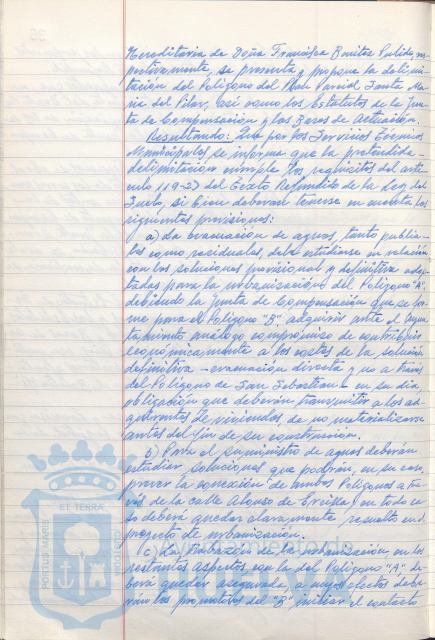 Hereditaria de Doña Francisca Benitez Pulido, res-
pectivamente, se presenta y propone la delimi-
tación del Polígono del Plan Parcial Santa Ma-
ria del Pilar, así como los Estatutos de la Jun-
ta de Compensación y las Bases de Actuación.
Resultando: Que por los Servicios Técnicos
Municipales se informa que la pretendida
delimitación cumple los requisitos del artí-
culo 119-2) del Texto Refundido de la Ley del
Suelo, si bien deberán tenerse en cuenta las
siguientes previsiones:
a) La evacuación de aguas, tanto pluvia-
les como residuales, debe estudiarse en relación
con las soluciones provisional y definitiva adop-
tadas para la urbanización del Polígono "A",
debiendo la Junta de Compensación que se for-
me para el Polígono "B", adquirir ante el Ayun-
tamiento análogo compromiso de contribuir
económicamente a los costes de la solución
definitiva - evacuación directa y no a través
del Polígono de San Sebastian - en su día
obligación que deberán transmitir a los ad-
quirentes de viviendas de no materializarse
antes del fin de su construcción.
b) Para el suministro de aguas deberán
estudiar soluciones que podrán, en su caso,
prever la conexión de ambos Polígonos a tra-
vés de la calle Alonso de Ercilla, en todo ca-
so deberá quedar claramente resuelto en el
proyecto de urbanización.
c) La trabazón de la urbanización en los
restantes aspectos, con la del Polígono "A" de-
berá quedar asegurada, a cuyos efectos debe-
rán los promotores del "B", iniciar el contacto
PORTUS MARIS
ET TERRA
CUSTODIA